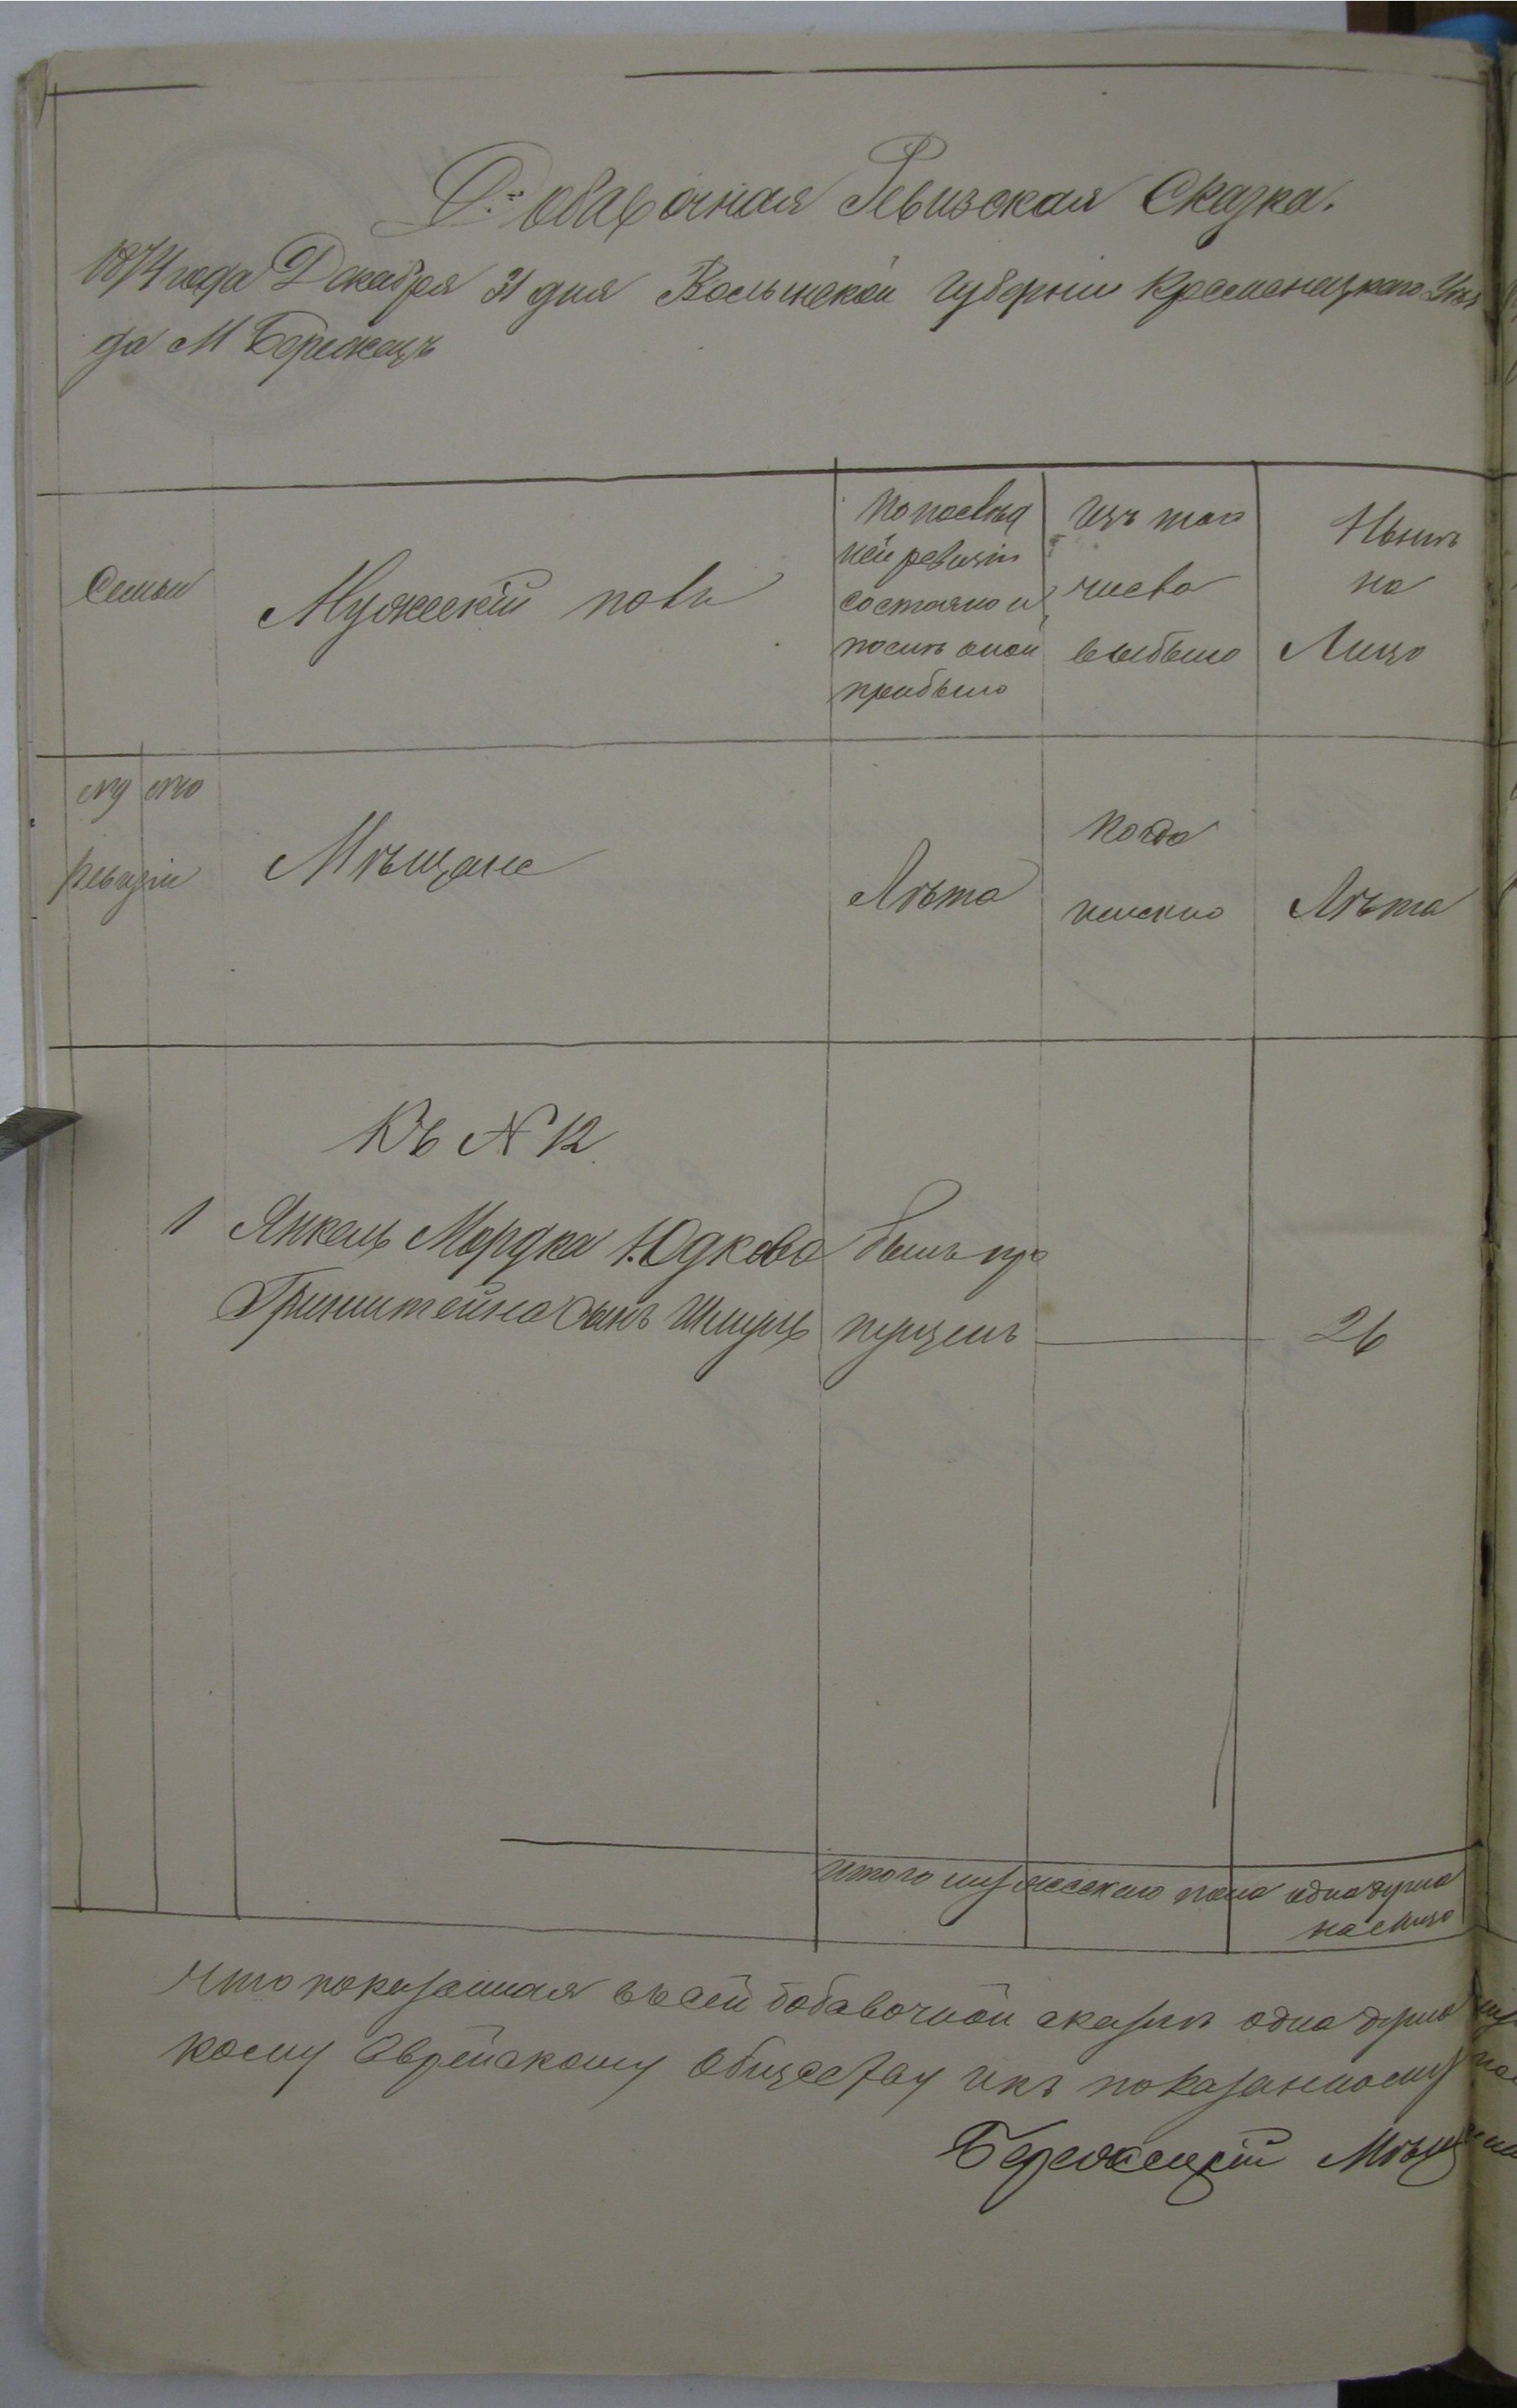 Добавочная Ревизская Сказка.
1874 года Декабря 31 дня Волынской губернии Кременецкаго Уѣз
да М Бережецъ
Семьи
Мужескій полъ
По послѣд
ней ревизіи
состояло и
послѣ оной
прибыло
Изъ того
числа
выбыло
Нынѣ
на
Лицо
ревизіи
Мѣщане
Лѣта
Когда
именно
Лѣта
Къ N 12
1 Янкель Мордка Юдкова былъ про
Гринштейна сынъ Шмуль пущенъ 26
Итого мужескаго пола одна душа
на лицо
Что показанная въ сей добавочной сказкѣ одна душа
кому Еврейскому Обществу и къ показанному
Бережецкій Мѣщ